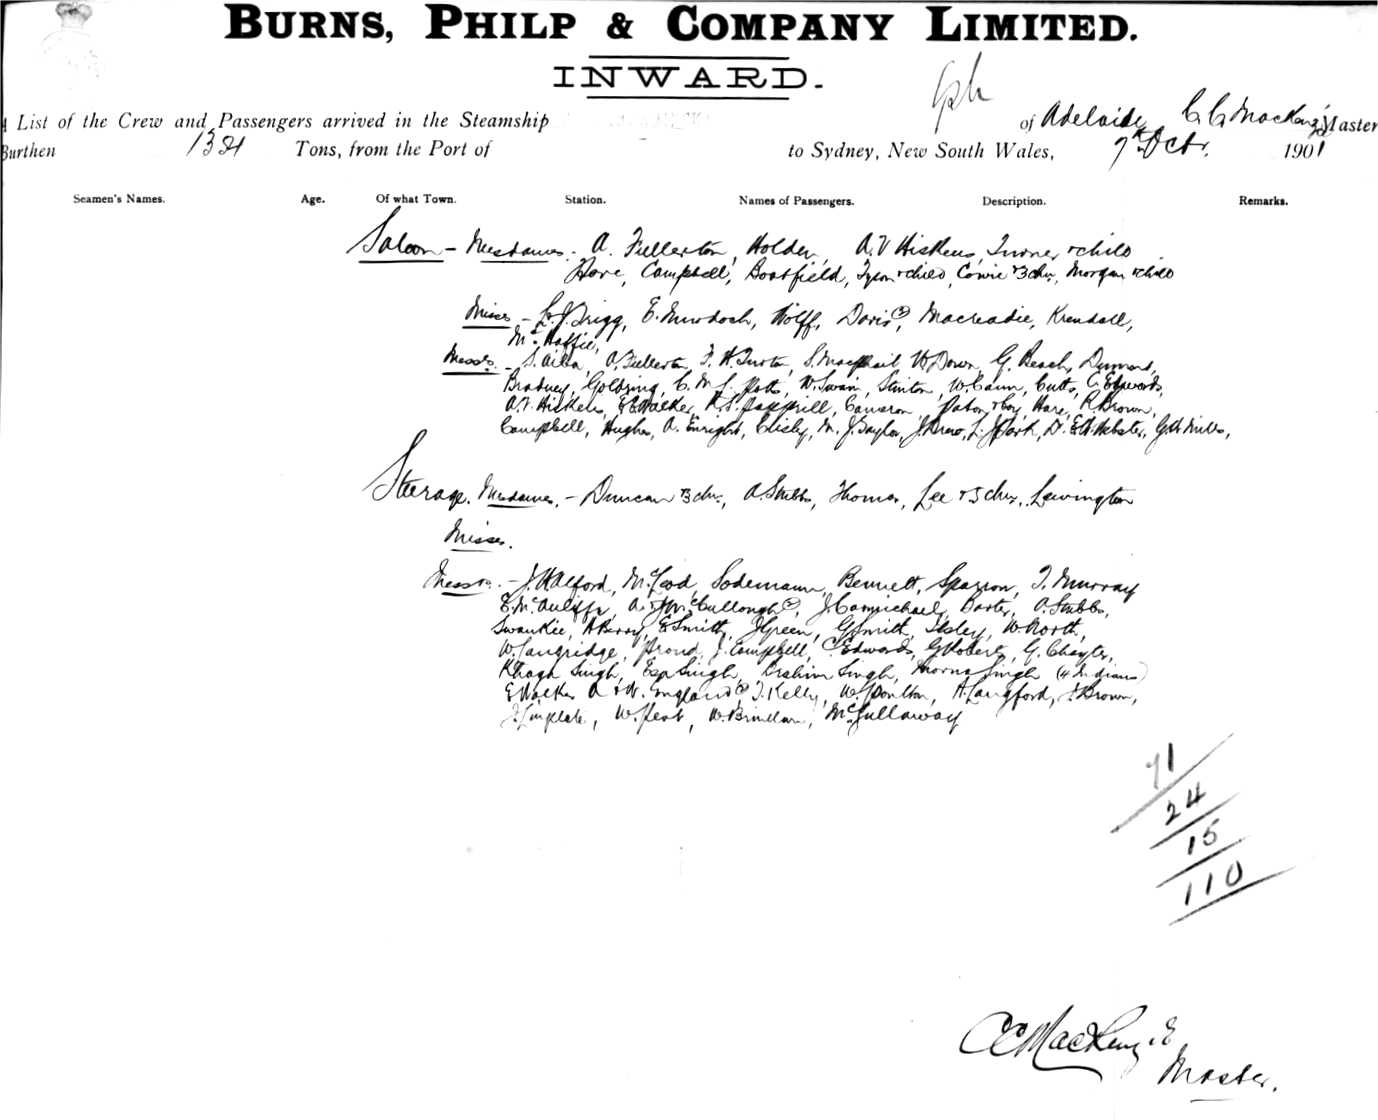 BURNS, PHILP & COMPANY LIMITED.
INWARD.
A List of the Crew and Passengers arrived in the Steamship of Adelaide C C Mackenzie Master
Burthen Tons, from the Port of to Sydney, New South Wales, 7th Octr. 1901
Seamen's Names. Age. Of what Town. Station. Names of Passengers. Description. Remarks.
Saloon - Mesdames. A. Fullerton, Holden, A.V. Hiskens, Turner & child
Hare, Campbell, Boatfield, Tyson & child, Cowie & 3 chn, Morgan & child
Misses - Grigg, E. Murdoch, Wolff, Davis, Macreadie, Krendall,
McHaffie,
Messrs. - A. Fullerton, F. H. Turton, S. Macphail, W. Down, G. Beach,
Bradney, Goldring, C. M. L. Potts, W. Swain, Stinton, W. Cann, Cutts, C. Edwards,
A.V. Hiskens, E. Walker, Cameron, Paton & boy, Hare, R. Brown,
Campbell, Hughes, A. Enright, M. J. Taylor, J. Drew, L. J. Park, Dr. E. H. Webster, G. H. Mills,
Steerage. Mesdames. - Duncan & 3 chn., A. Stubbs, Thomas, Lee & 5 chn., Lewington
Misses.
Messrs. - J. Halford, McLeod, Sodemann, Bennett, Sparrow, T. Murray
E. McAuliffe, A. & J. McCullough, J. Carmichael, Darter, A. Stubbs,
Swankie, A. Berry, E. Smith, J. Green, G. Smith, Ilsley, W. North,
W. Langridge, Proud, J. Campbell, C. Edwards, G. Roberts, G. Chayter,
Singh, Esa Singh, Singh, Singh (4 Indians)
E. Walker, A & W. England, J. Kelly, W. Poulton, A. Langford, J. Brown,
W. Peat, McGullaway
71
24
15
110
C C MacKenzie
Master.